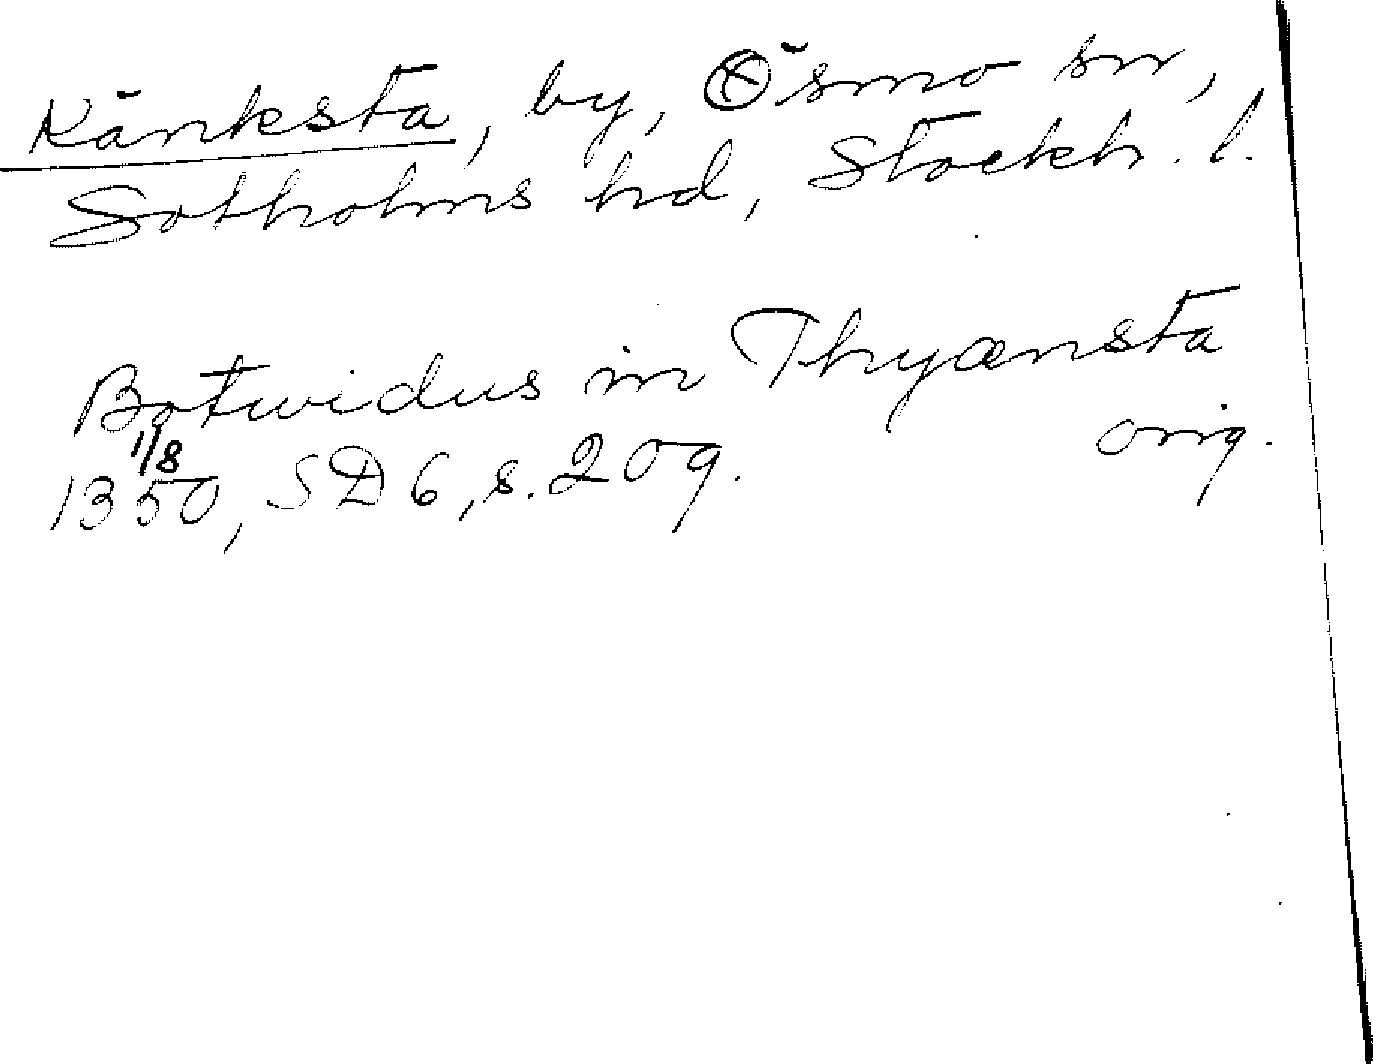 Känksta, by, Ösmo sn,
Sotholms hd, Stockh. l.
Botwidus in Thyænsta
1350 1/8, SD 6, s. 209. orig.